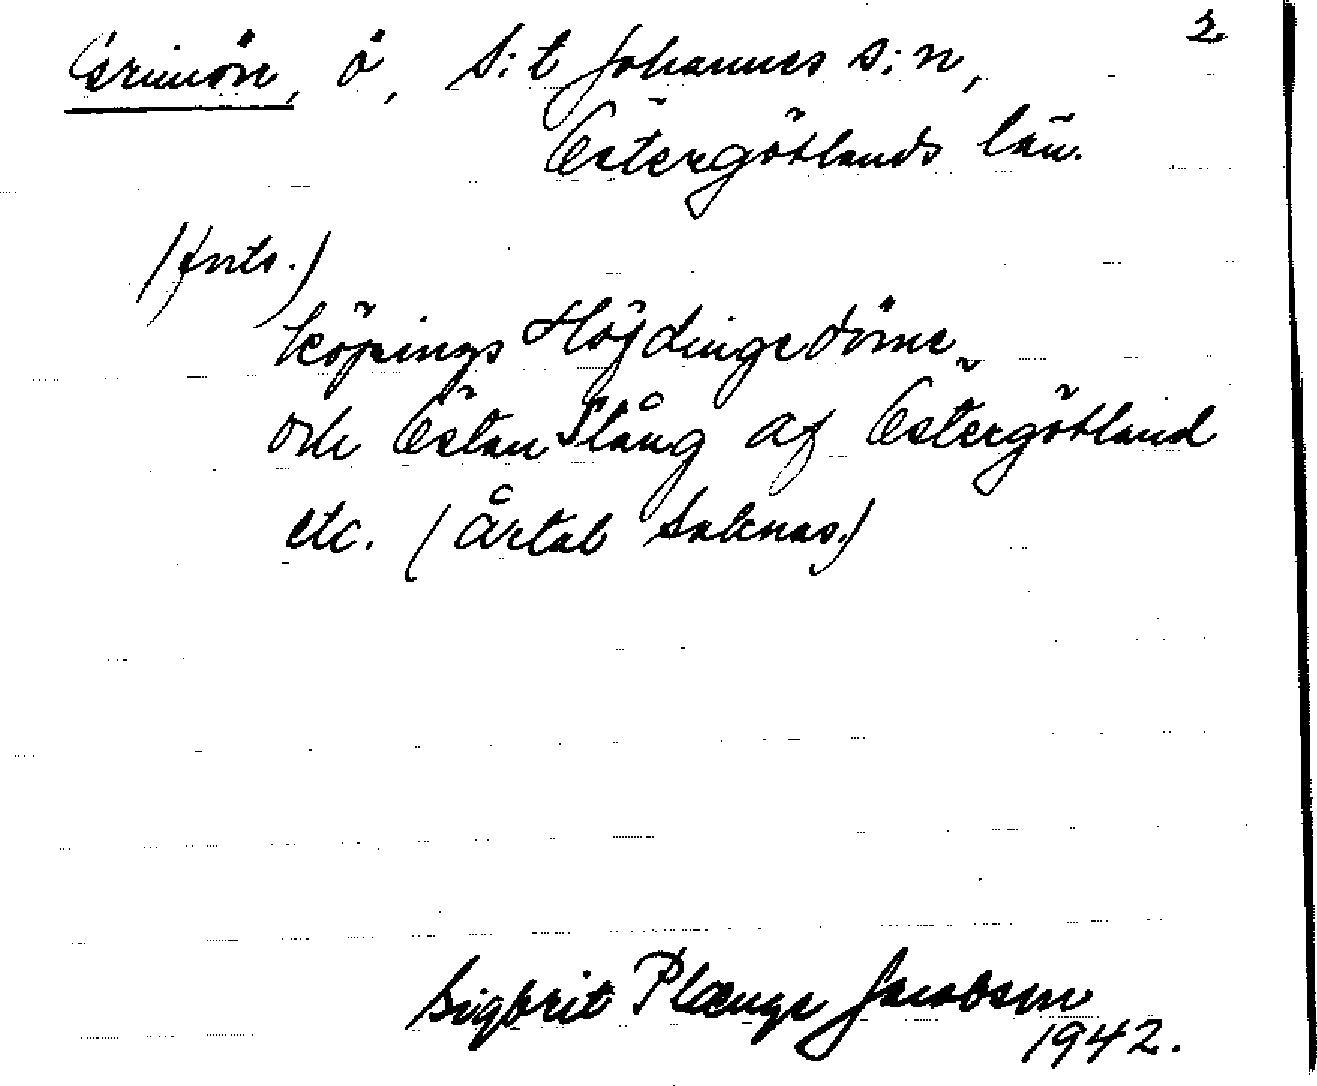 2
Grimön, ö, S:t Johannes s:n,
Östergötlands län.
(forts.)
köpings Höjdingedöme
och Östan Stång af Östergötland
etc. (Årtal saknas.)
Sigbrit Plænge Jacobson
1942.